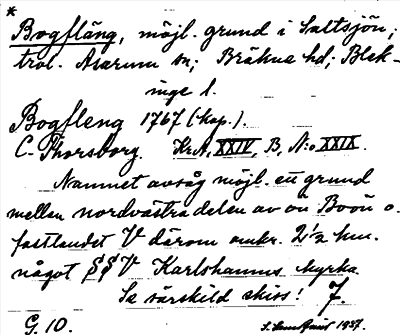 *
Bogfläng, möjl. grund i Saltsjön;
trol. Asarum sn; Bräkne hd; Blek-
inge l.
Bogfleng 1767 (kop.).
C. Thorsborg. Kr.A, XXIV, B, N:o XXIX.
Namnet avsåg möjl. en grund
mellan nordvästra delen av ön Boön o.
fastlandet V därom omkr. 2½ km.
något S V Karlshamns kyrka
Se särskild skiss! 7.
G. 10. 1937.